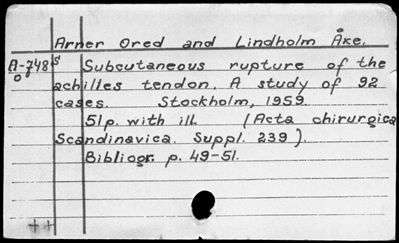 Arner Ored and Lindholm Åke.
A-748 s Subcutaneous rupture of the
o achilles tendon. A study of 92
cases. Stockholm, 1959
51p. with ill. (Acta chirurgica
Scandinavica. Suppl. 239).
Bibliogr. p. 49-51.
++